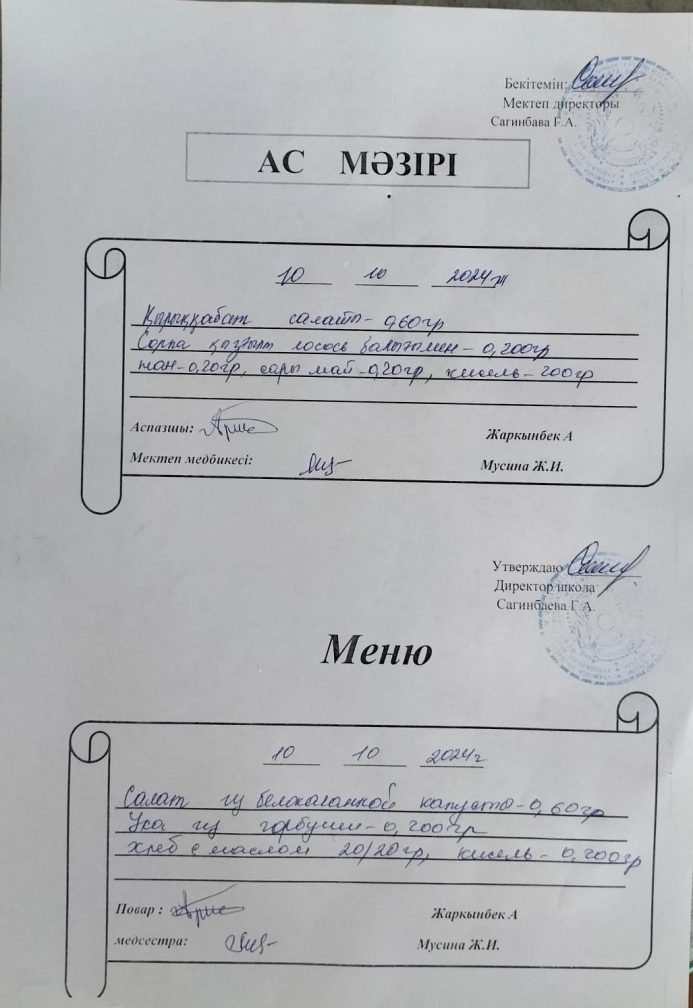 Бекітемін:
Мектеп директоры
Сагинбава Г.А.
АС МӘЗІРІ
10 10 2024ж
Қырыққабат салаты - 0,60гр
Сорпа қызғылт лосось балығымен - 0,200гр
нан - 0,20гр, сары май - 0,20гр, кисель - 200гр
Аспазшы:
Жаркынбек А
Мектеп медбикесі:
Мусина Ж.И.
Утверждаю
Директор школа
Сагинбаева Г.А.
Меню
10 10 2024г
Салат из белокачанной капуста - 0,60гр
Уха из горбуши - 0,200гр
хлеб с маслом 20/20гр, кисель - 0,200гр
Повар :
Жаркынбек А
медсестра:
Мусина Ж.И.